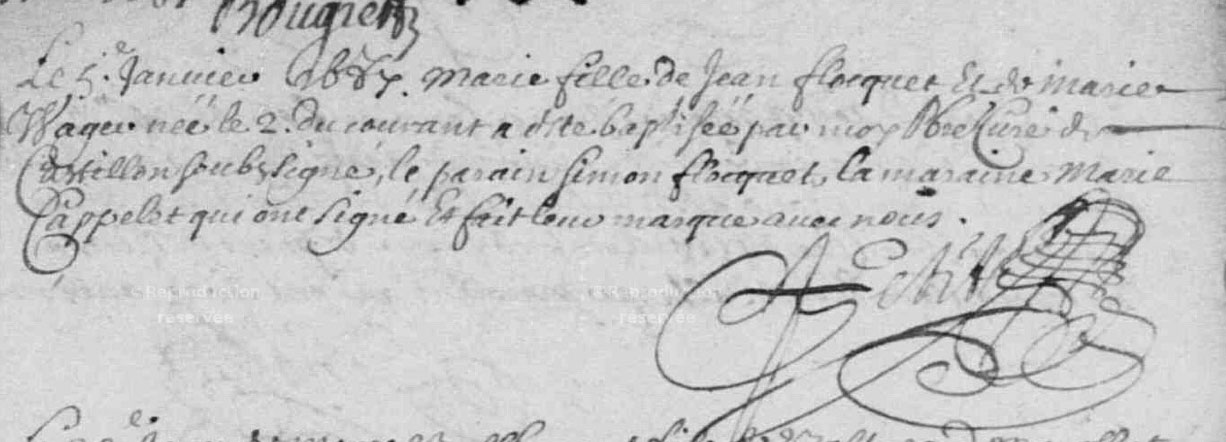 Bougrel
Le 5e. Janvier 1687. Marie fille de Jean flocquet Et de marie
Wager née le 2. du courant a esté baptisée par moy Pbre Curé de
Castillon soubsigné, le parain Simon flocquet, la maraine Marie
Cappelet qui ont signé Et fait leur marque avec nous.
Reproduction réservée
Reproduction réservée